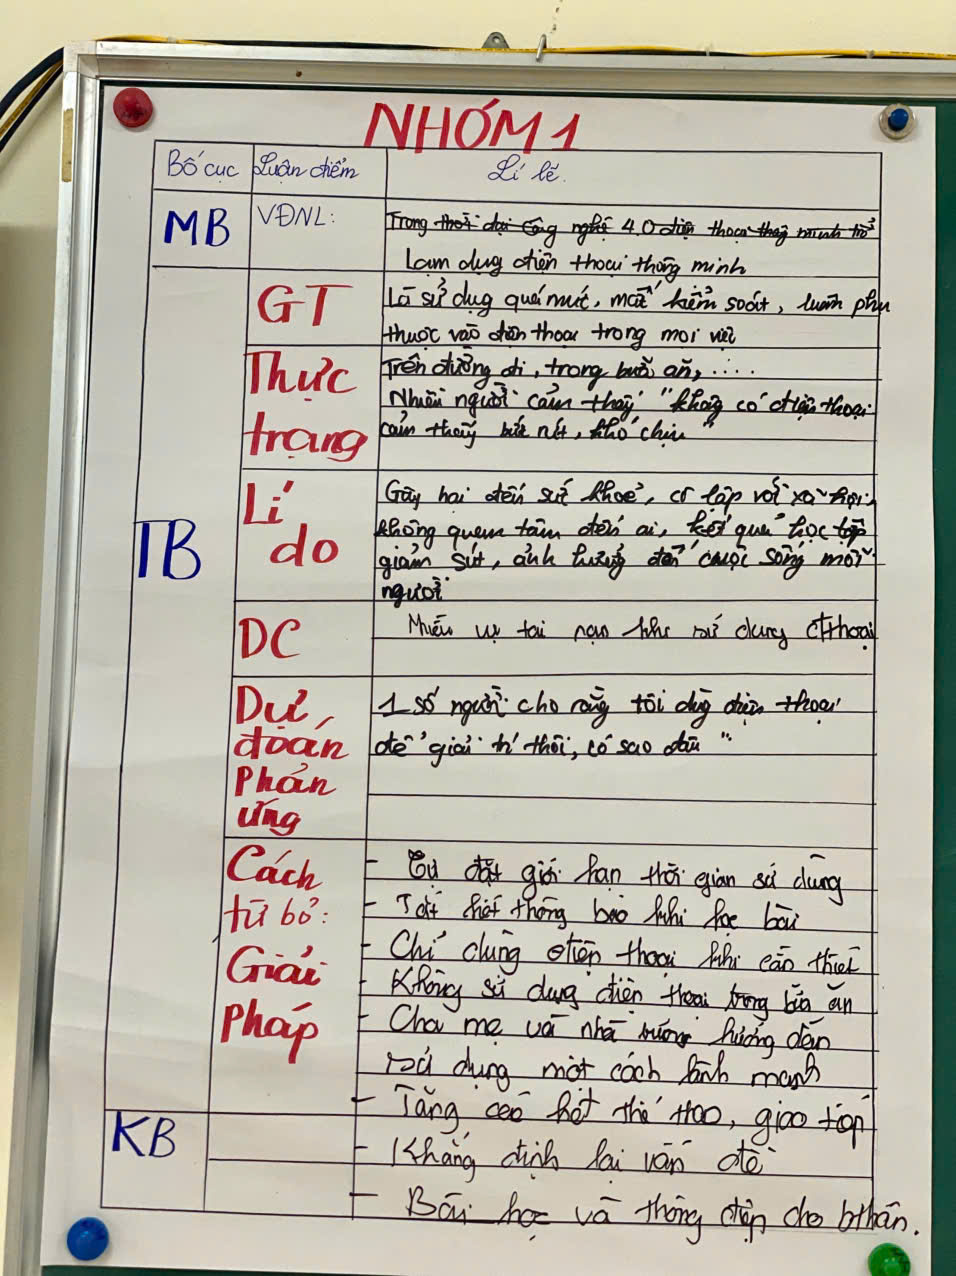 NHÓM 1
Bố cục Luận điểm Lí lẽ.
MB VĐNL: Trong thời đại công nghệ 4.0 điện thoại thông minh trở
Lạm dụng điện thoại thông minh
GT Là sử dụng quá mức, mất kiểm soát, luôn phụ
thuộc vào điện thoại trong mọi việc
Thực Trên đường đi, trong bữa ăn, ....
trạng Nhiều người cảm thấy "không có điện thoại
cảm thấy bứt rứt, khó chịu"
TB
Lí Gây hại đến sức khoẻ, cô lập với xã hội,
do không quan tâm đến ai, kết quả học tập
giảm sút, ảnh hưởng đến cuộc sống mọi
người
DC Nhiều vụ tai nạn khi sử dụng đthoại
Dự 1 số người cho rằng tôi dùng điện thoại
đoán để giải trí thôi, có sao đâu"
Phản
ứng
Cách - Tự đặt giới hạn thời gian sử dụng
từ bỏ: - Tắt hết thông báo khi học bài
Giải - Chỉ dùng điện thoại khi cần thiết
- Không sử dụng điện thoại trong bữa ăn
Pháp - Cha mẹ và nhà trường hướng dẫn
sử dụng một cách lành mạnh
- Tăng thể thao, giao tiếp
KB - Khẳng định lại vấn đề
- Bài học và thông điệp cho bthân.